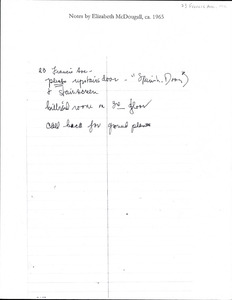 Notes by Elizabeth McDougall, ca. 1965
23 Francis Ave -
upstairs door - "Spanish Door"
& stairscreen
billiard room on 3rd floor
call back for ground plans